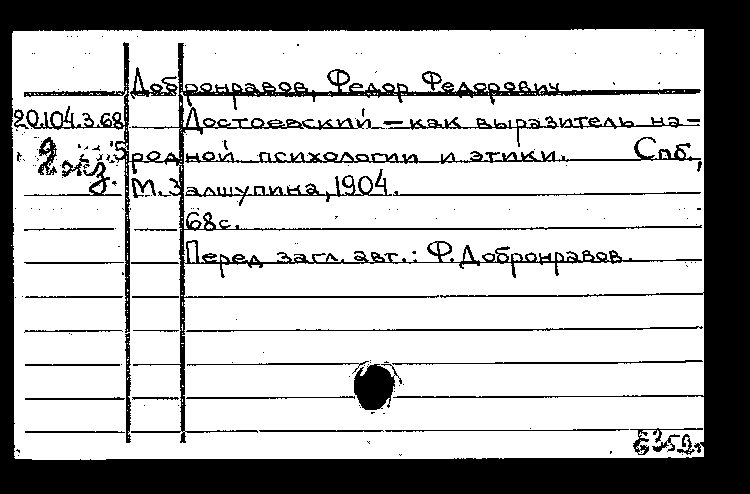 Добронравов, Федор Федорович
20.104.3.68 Достоевский – как выразитель на-
родной психологии и этики. Спб.,
2 экз.
М. Залшупина, 1904.
68с.
Перед загл. авт.: Ф. Добронравов.